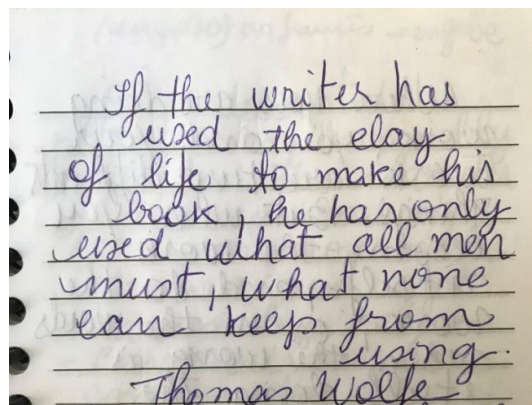 If the writer has
used the clay
of life to make his
book, he has only
used what all men
must, what none
can keep from
using.
Thomas Wolfe